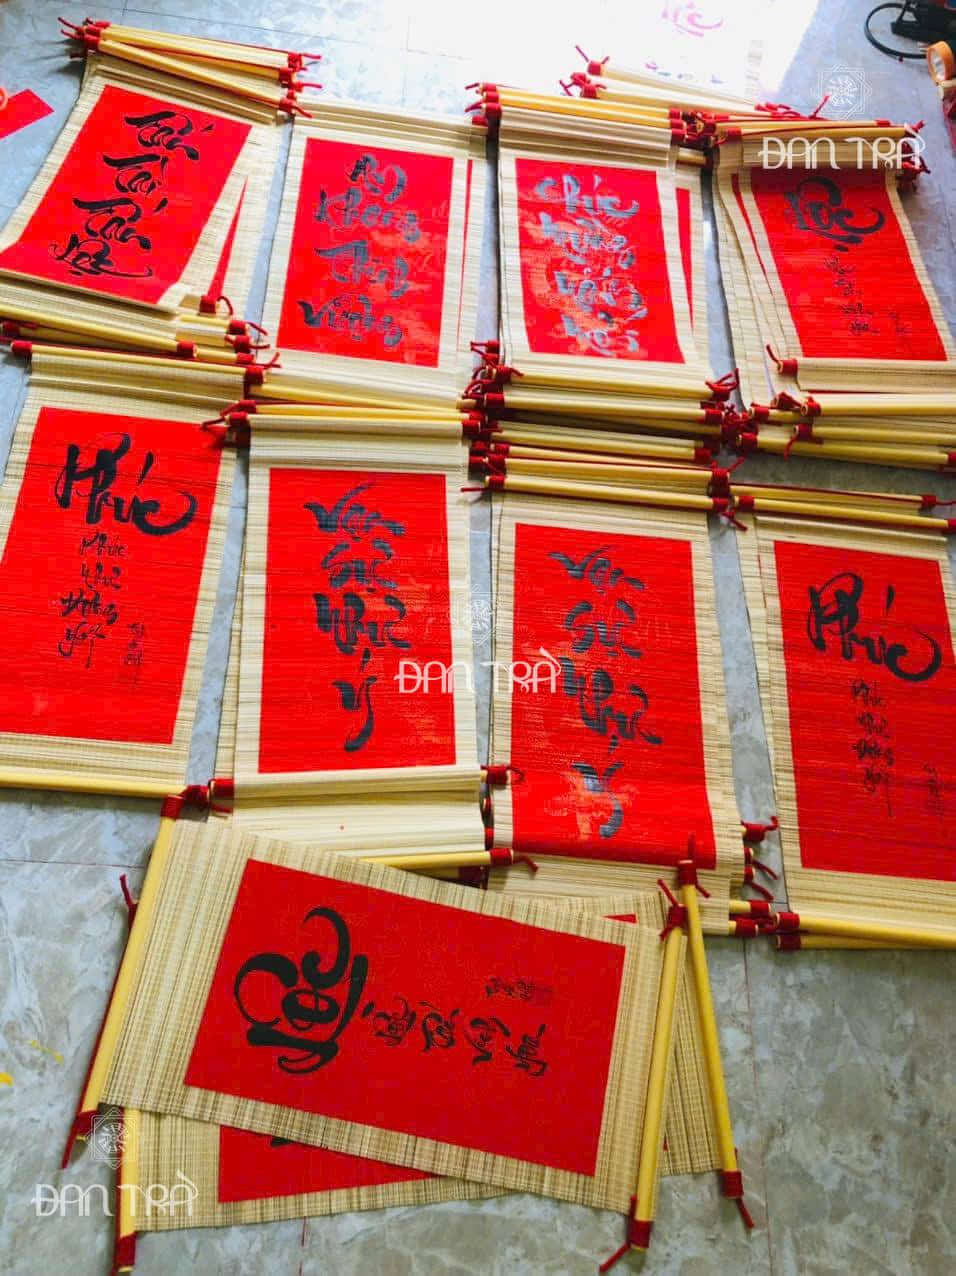 Tấn
Tài
Tấn
Lộc
An
Khang
Thịnh
Vượng
Chúc
Mừng
Năm
Mới
Lộc
ĐAN TRÀ
Phúc
Phúc
Như
Đông
Hải
Vạn
Sự
Như
Ý
Vạn
Sự
Như
Ý
ĐAN TRÀ
Phúc
Phúc
Như
Đông
Hải
Lộc
ĐAN TRÀ